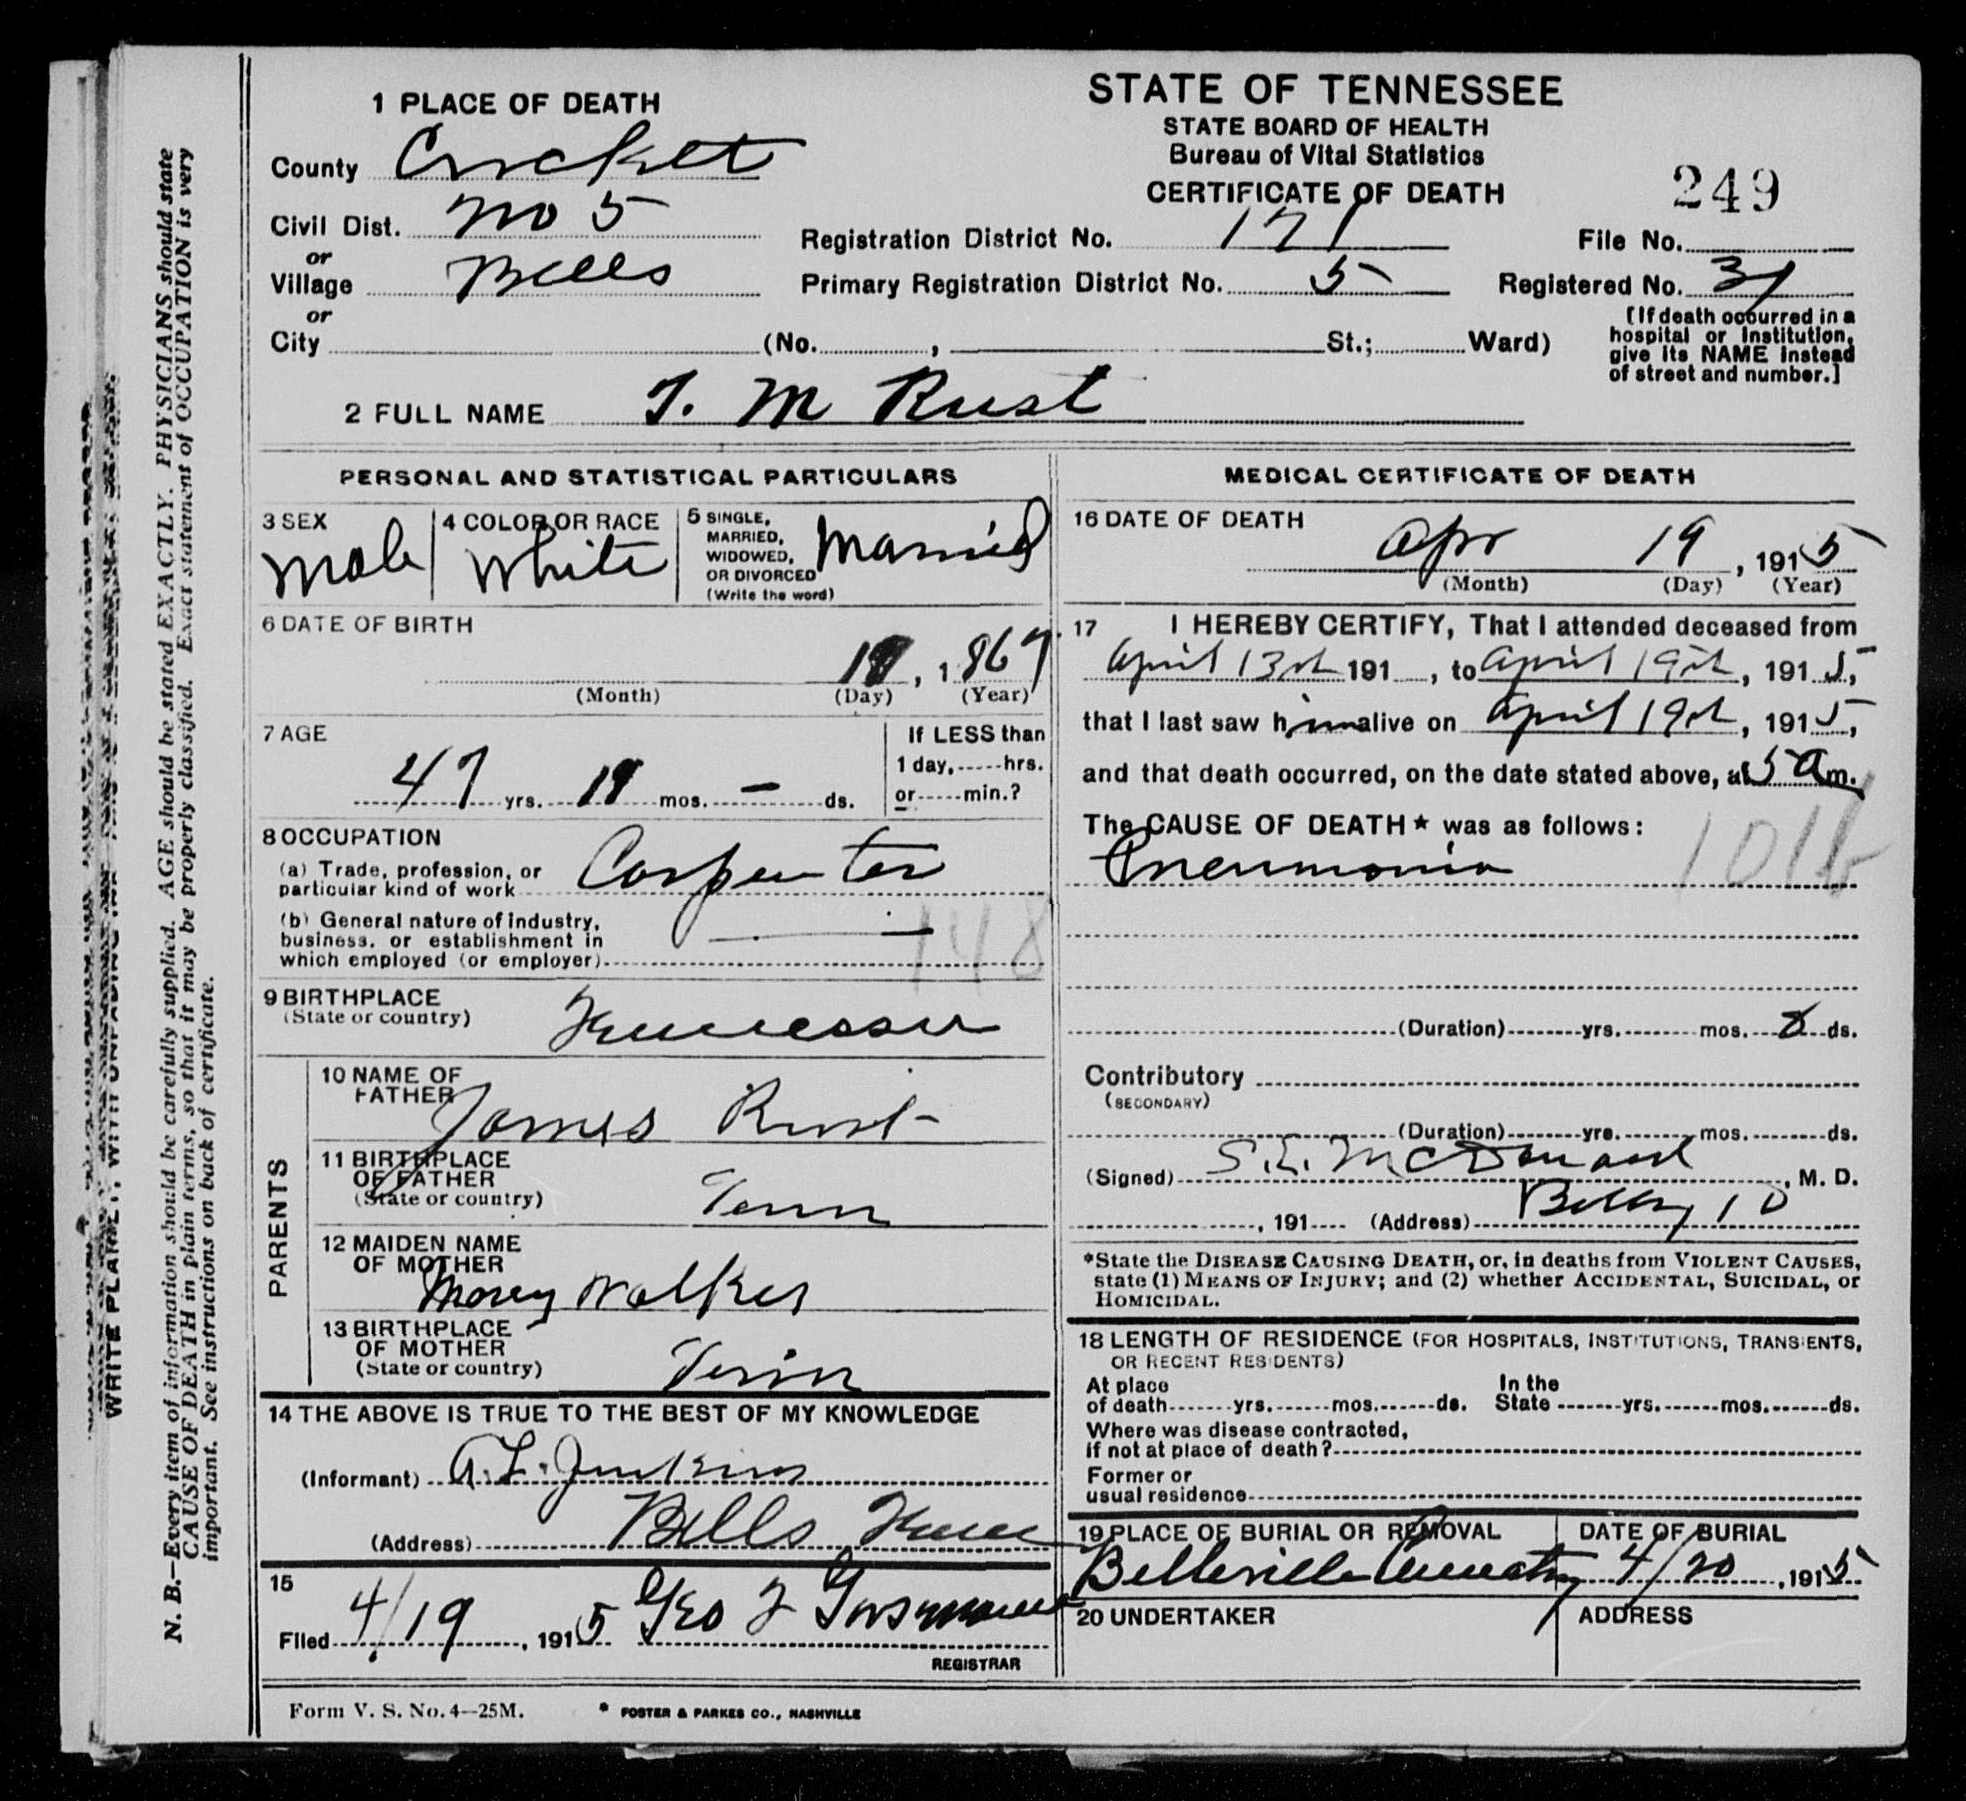 1 PLACE OF DEATH
County Crockett
Civil Dist. No 5
or
Village Bells
or
City (No. , St.; Ward)
STATE OF TENNESSEE
STATE BOARD OF HEALTH
Bureau of Vital Statistics
CERTIFICATE OF DEATH
249
Registration District No. 171
File No.
Primary Registration District No. 5
Registered No. 31
[If death occurred in a
hospital or institution,
give its NAME instead
of street and number.]
2 FULL NAME T. M Rust
PERSONAL AND STATISTICAL PARTICULARS
3 SEX
Male
4 COLOR OR RACE
White
5 SINGLE,
MARRIED,
WIDOWED,
OR DIVORCED
(Write the word)
Married
6 DATE OF BIRTH
, 1867
(Month) (Day) (Year)
7 AGE
47 yrs. mos. – ds.
If LESS than
1 day, hrs.
or min.?
8 OCCUPATION
(a) Trade, profession, or
particular kind of work Carpenter
(b) General nature of industry,
business, or establishment in
which employed (or employer)
148
9 BIRTHPLACE
(State or country) Tennessee
PARENTS
10 NAME OF
FATHER James Rust
11 BIRTHPLACE
OF FATHER
(State or country) Tenn
12 MAIDEN NAME
OF MOTHER
Marey Walker
13 BIRTHPLACE
OF MOTHER
(State or country) Tenn
14 THE ABOVE IS TRUE TO THE BEST OF MY KNOWLEDGE
(Informant) A. L. Jenkins
(Address) Bells Tenn
15
Filed 4/19, 1915 Geo
REGISTRAR
Form V. S. No. 4—25M.
* FOSTER & PARKES CO., NASHVILLE
MEDICAL CERTIFICATE OF DEATH
16 DATE OF DEATH
Apr 19, 1915
(Month) (Day) (Year)
17 I HEREBY CERTIFY, That I attended deceased from
April 13th 191 , to April 19th, 1915,
that I last saw him alive on April 19th, 1915,
and that death occurred, on the date stated above, at 5 a m.
The CAUSE OF DEATH* was as follows:
Pneumonia
101b
(Duration) yrs. mos. 8 ds.
Contributory
(SECONDARY)
(Duration) yrs. mos. ds.
(Signed) S. E. McDonald, M. D.
, 191 (Address) Bells,
*State the DISEASE CAUSING DEATH, or, in deaths from VIOLENT CAUSES,
state (1) MEANS OF INJURY; and (2) whether ACCIDENTAL, SUICIDAL, or
HOMICIDAL.
18 LENGTH OF RESIDENCE (FOR HOSPITALS, INSTITUTIONS, TRANSIENTS,
OR RECENT RESIDENTS)
At place
of death yrs. mos. ds.
In the
State yrs. mos. ds.
Where was disease contracted,
if not at place of death?
Former or
usual residence
19 PLACE OF BURIAL OR REMOVAL
Belleville Cemetry
DATE OF BURIAL
4/20, 1915
20 UNDERTAKER
ADDRESS
WRITE PLAINLY, WITH UNFADING INK
N. B.—Every item of information should be carefully supplied. AGE should be stated EXACTLY. PHYSICIANS should state
CAUSE OF DEATH in plain terms, so that it may be properly classified. Exact statement of OCCUPATION is very
important. See instructions on back of certificate.